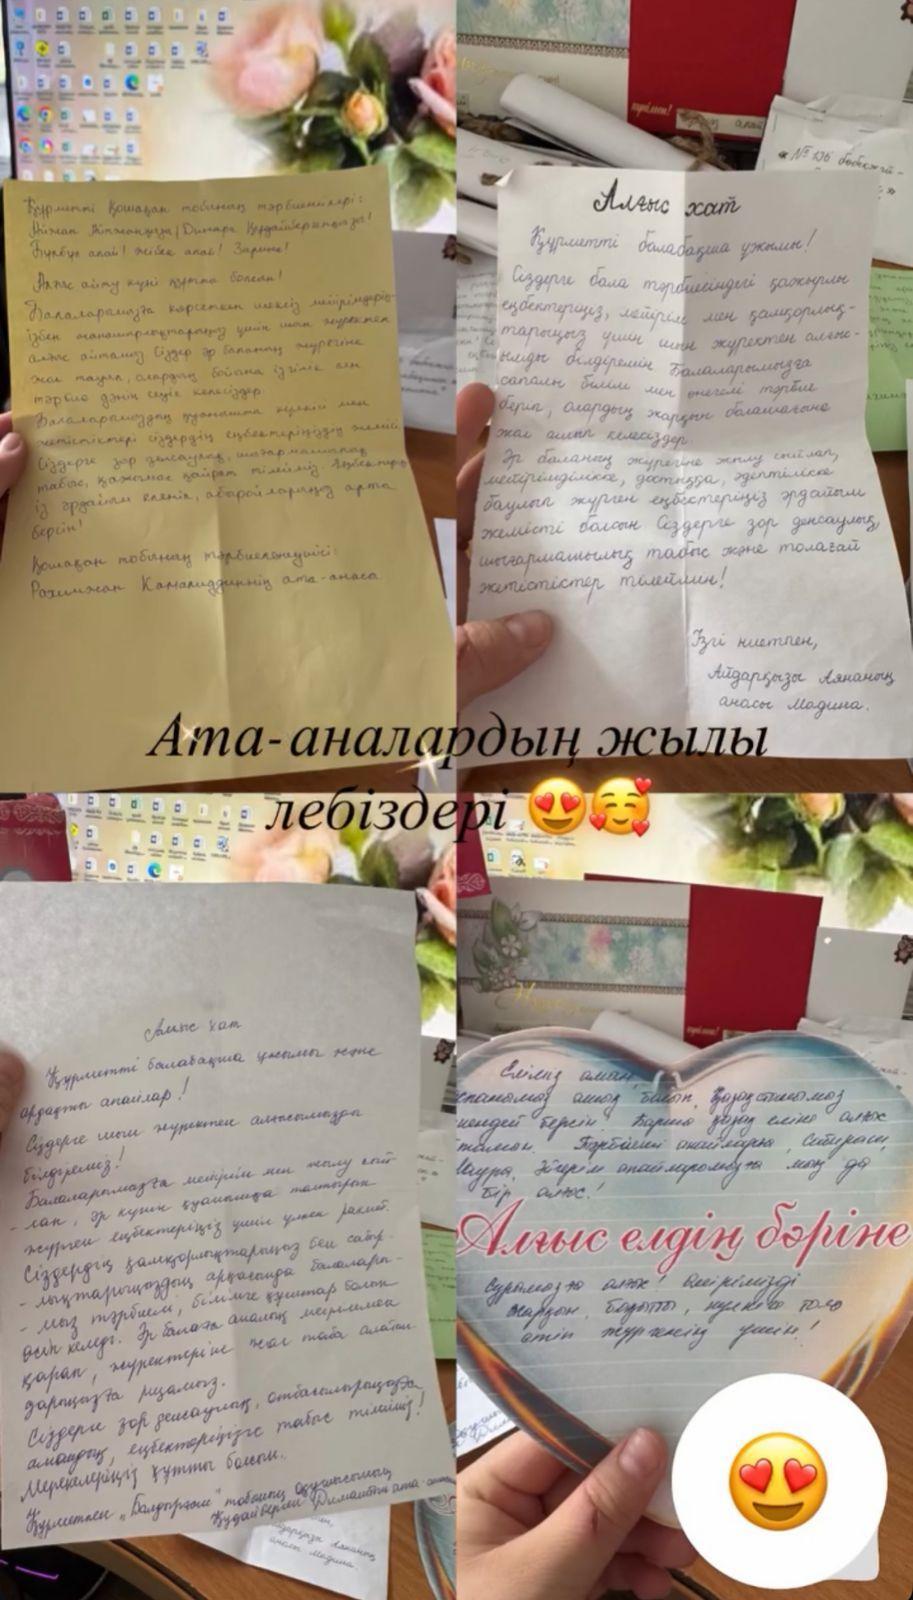 Құрметті Қошақан тобының тәрбиешілері:
Айжан Айтжанқызы! Динара Құдайбергенқызы!
Бұлбұл апай! Жібек апай! Зарина!
Алғыс айту күні құтты болсын!
Балаларымызға көрсеткен шексіз мейірімдерің-
ізбен жанашырлықтарыңыз үшін шын жүректен
алғыс айтамыз Сіздер әр баланың жүрегіне
жол тауып, олардың бойына ізгілік пен
тәрбие дәнін сеуіп келесіздер.
Балаларымыздың қуанышты күлкісі мен
жетістіктері сіздердің еңбектеріңіздің жемісі
Сіздерге зор денсаулық, шығармашылық
табыс, қажымас қайрат тілейміз. Еңбектерің
із әрдайым еленіп, абыройларыңыз арта
берсін!
Қошақан тобының тәрбиеленушісі:
Рахимжан Камалиддиннің ата-анасы
Алғыс хат
Құрметті балабақша ұжымы!
Сіздерге бала тәрбиесіндегі қажырлы
еңбектеріңіз, мейірім мен қамқорлық-
тарыңыз үшін шын жүректен алғыс-
ымды білдіремін Балаларымызға
сапалы білім мен өнегелі тәрбие
беріп, олардың жарқын болашағына
жол ашып келесіздер.
Әр баланың жүрегіне жылу сыйлап,
мейірімділікке, достыққа, әдептілікке
баулып жүрген еңбектеріңіз әрдайым
жемісті болсын Сіздерге зор денсаулық,
шығармашылық табыс және толағай
жетістістер тілеймін!
Ізгі ниетпен,
Айдарқызы Аянаның
анасы Мадина.
« №136 бөбекжай -
Ата-аналардың жылы
лебіздері
Алғыс хат
Құрметті балабақша ұжымы және
ардақты апайлар!
Сіздерге шын жүректен алғысымызды
білдіреміз!
Балаларымызға мейірім мен жылу сый
- лап, әр күнін қуанышқа толтырып
жүрген еңбектеріңіз үшін үлкен рахмет.
Сіздердің қамқорлықтарыңыз бен сабыр-
- лықтарыңыздың арқасында балалары-
- мыз тәрбиелі, білімге құштар болып
өсіп келеді. Әр балаға аналық мейіріммен
қарап, жүректеріне жол таба алатын
дарыңызға ризамыз.
Сіздерге зор денсаулық, отбасыларыңызға
амандық, еңбектеріңізге табыс тілейміз!
Мерекелеріңіз құтты болсын.
Құрметпен "Балдырған" тобының оқушысының
Құдайберген Димаштың ата-анасы
Айдарқызы Аянаның
анасы Мадина.
Еліміз аман,
спанымыз ашық болып, Қазақстанымыз
көркендей берсін. Барша қазақ еліне алғыс
айтамын. Тәрбиеші апайларға,
апайларымызға мың да
бір алғыс!
Алғыс елдің бәріне
алғыс! Өмірімізді
жарқын, бақытты, нұрға толы
етіп жүргенің үшін!